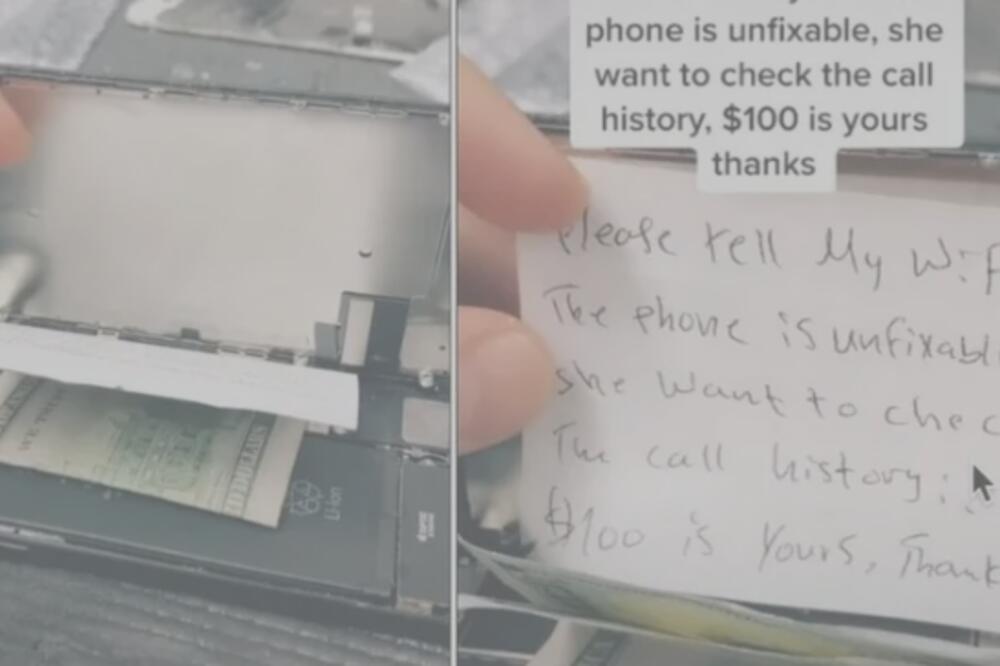 phone is unfixable, she
want to check the call
history, $100 is yours
thanks
Please tell My Wif
The phone is unfixabl
she want to chec
The call history:
$100 is Yours, Thank
Li-ion